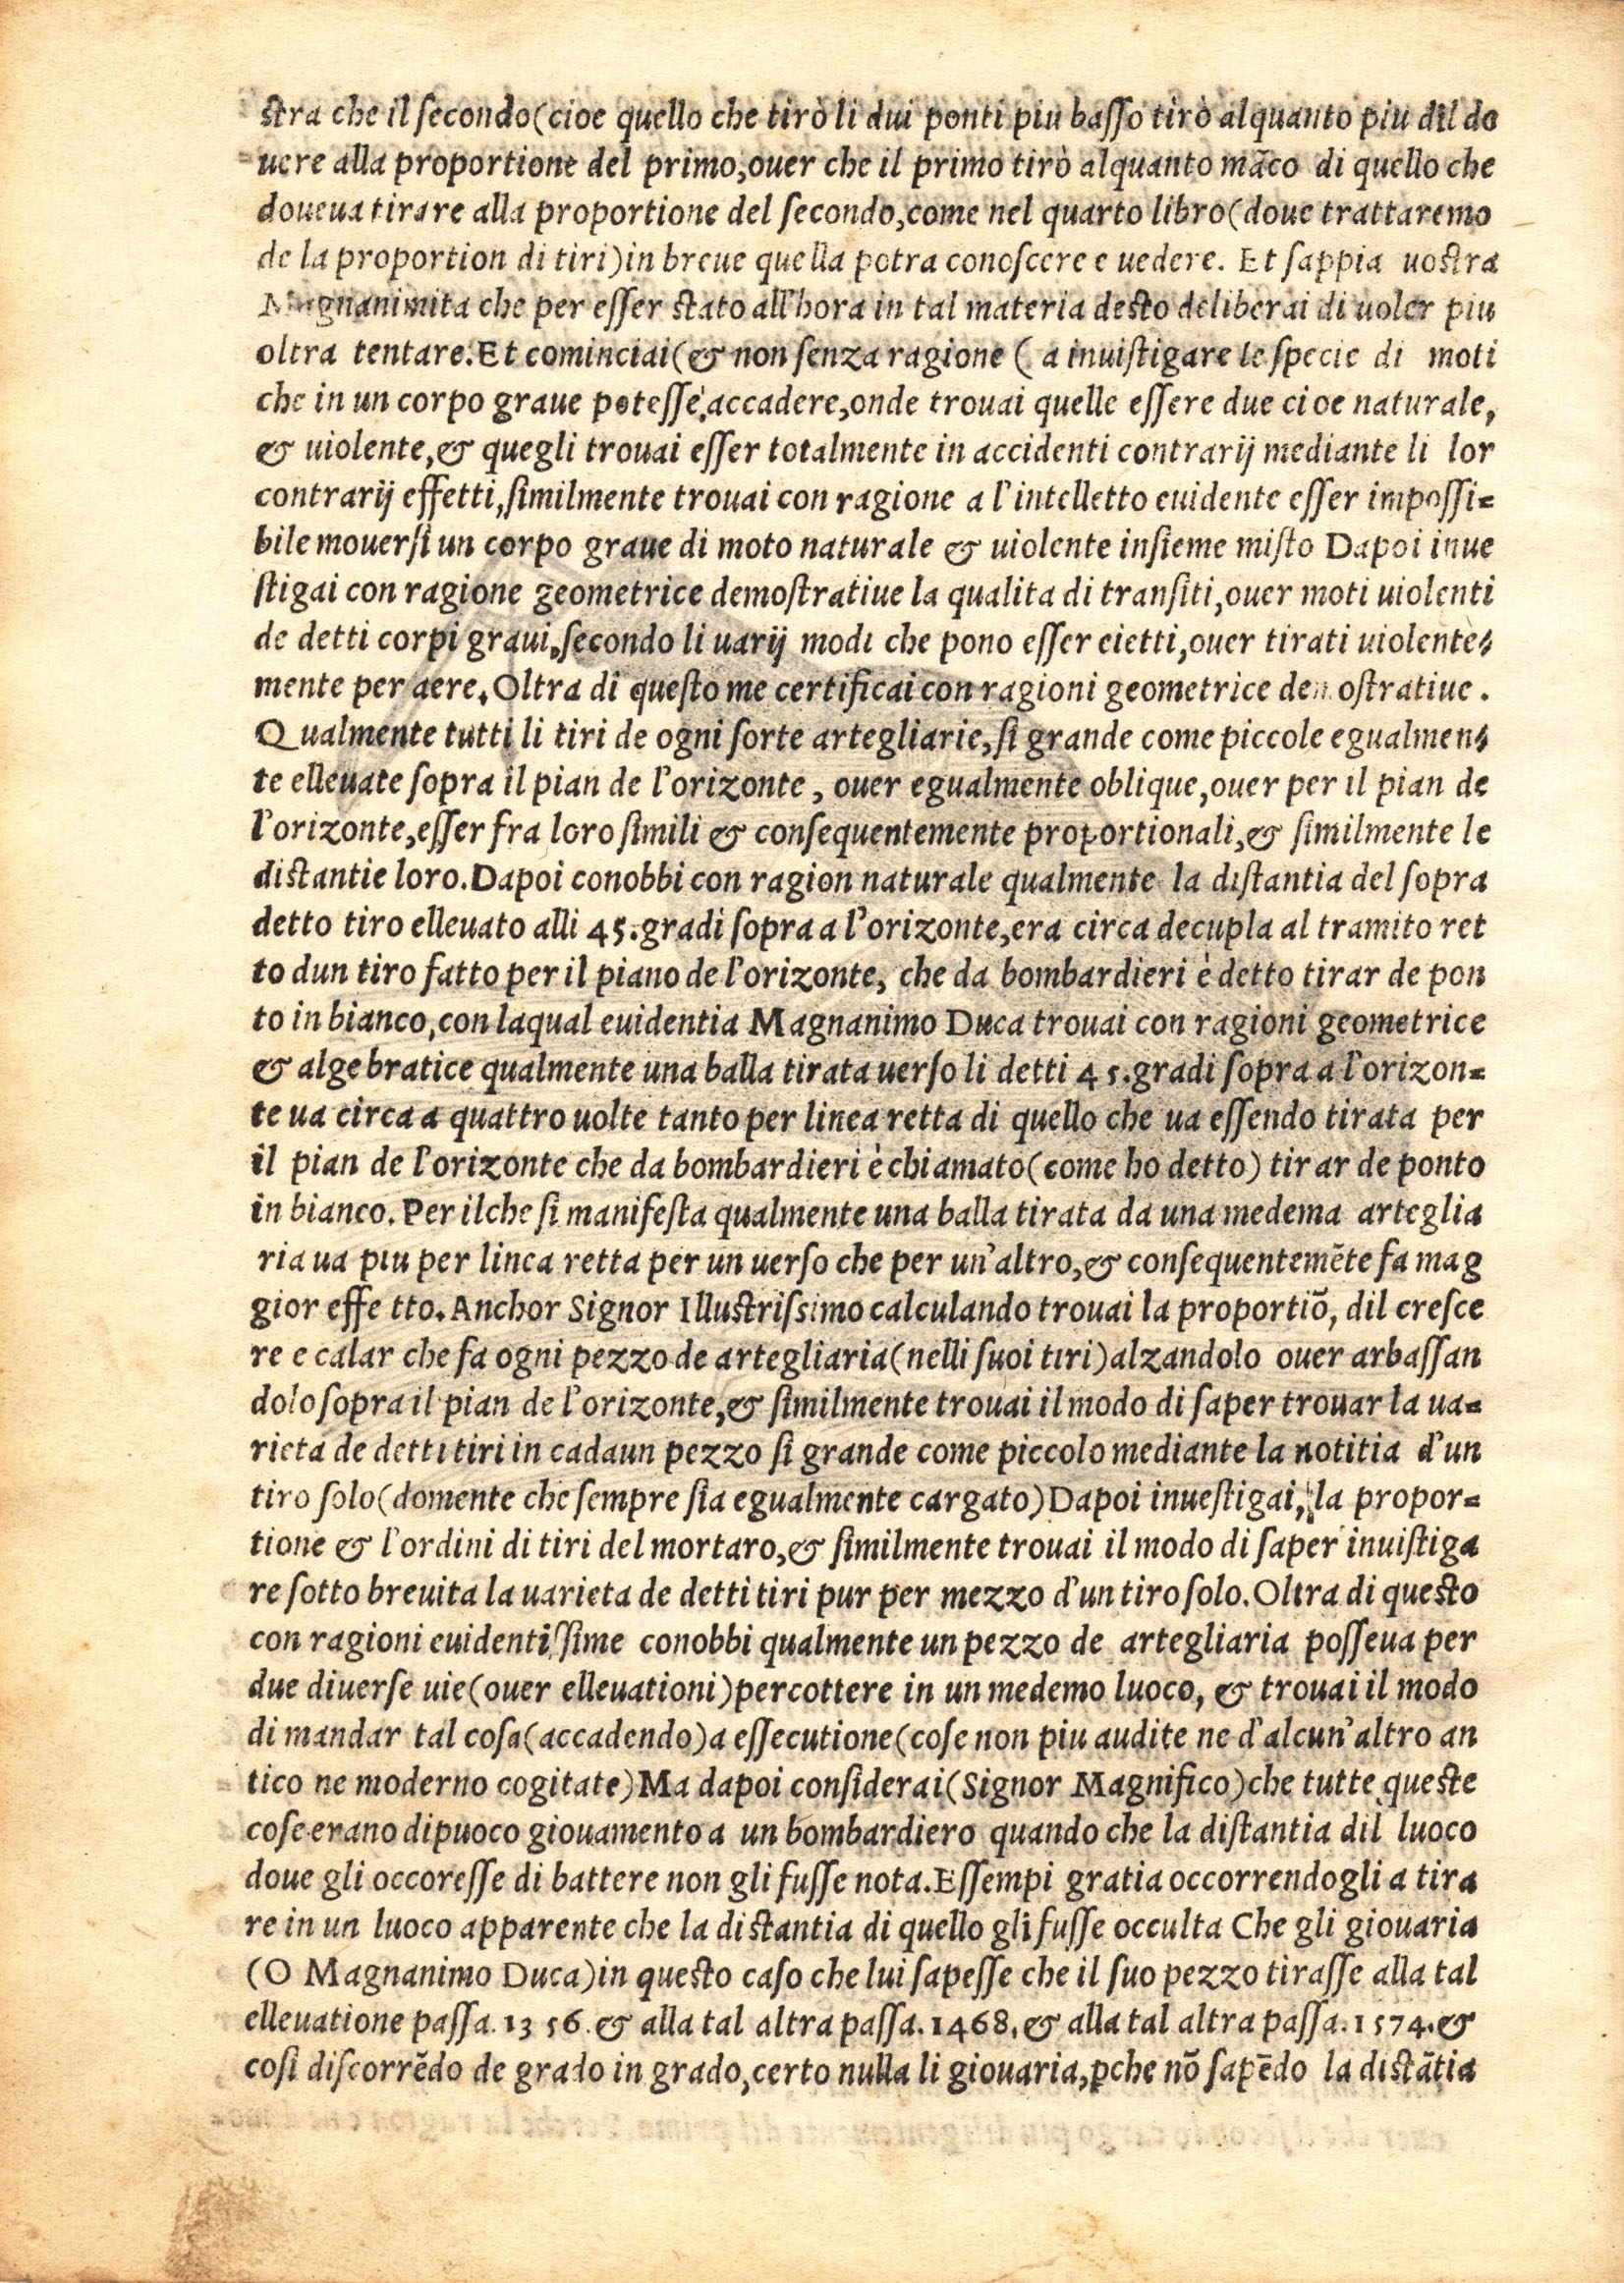 stra che il secondo(cioe quello che tirò li dui ponti piu basso tirò alquanto piu dil do
uere alla proportione del primo,ouer che il primo tirò alquanto mãco di quello che
doueua tirare alla proportione del secondo,come nel quarto libro(doue trattaremo
de la proportion di tiri)in breue quella potra conoscere e uedere. Et sappia uostra
Magnanimita che per esser stato all'hora in tal materia desto deliberai di uoler piu
oltra tentare.Et cominciai(& non senza ragione ( a inuistigare le specie di moti
che in un corpo graue potesse accadere,onde trouai quelle essere due cioe naturale,
& uiolente,& quegli trouai esser totalmente in accidenti contrarij mediante li lor
contrarij effetti,similmente trouai con ragione a l'intelletto euidente esser impossi-
bile mouersi un corpo graue di moto naturale & uiolente insieme misto Dapoi inue
stigai con ragione geometrice demostratiue la qualita di transiti,ouer moti uiolenti
de detti corpi graui,secondo li uarij modi che pono esser eietti,ouer tirati uiolente-
mente per aere.Oltra di questo me certificai con ragioni geometrice demostratiue.
Qualmente tutti li tiri de ogni sorte artegliarie,si grande come piccole egualmen-
te elleuate sopra il pian de l'orizonte, ouer egualmente oblique,ouer per il pian de
l'orizonte,esser fra loro simili & consequentemente proportionali,& similmente le
distantie loro.Dapoi conobbi con ragion naturale qualmente la distantia del sopra
detto tiro elleuato alli 45.gradi sopra a l'orizonte,era circa decupla al tramito ret
to dun tiro fatto per il piano de l'orizonte, che da bombardieri è detto tirar de pon
to in bianco,con laqual euidentia Magnanimo Duca trouai con ragioni geometrice
& algebratice qualmente una balla tirata uerso li detti 45.gradi sopra a l'orizon-
te ua circa a quattro uolte tanto per linea retta di quello che ua essendo tirata per
il pian de l'orizonte che da bombardieri è chiamato(come ho detto) tirar de ponto
in bianco.Per ilche si manifesta qualmente una balla tirata da una medema arteglia
ria ua piu per linea retta per un uerso che per un'altro,& consequentemẽte fa mag
gior effetto.Anchor Signor Illustrissimo calculando trouai la proportiõ, dil cresce
re e calar che fa ogni pezzo de artegliaria(nelli suoi tiri)alzandolo ouer arbassan
dolo sopra il pian de l'orizonte,& similmente trouai il modo di saper trouar la ua-
rieta de detti tiri in cadaun pezzo si grande come piccolo mediante la notitia d'un
tiro solo(domente che sempre sia egualmente cargato)Dapoi inuestigai, la propor-
tione & l'ordini di tiri del mortaro,& similmente trouai il modo di saper inuistiga
re sotto breuita la uarieta de detti tiri pur per mezzo d'un tiro solo.Oltra di questo
con ragioni euidentissime conobbi qualmente un pezzo de artegliaria posseua per
due diuerse uie(ouer elleuationi)percottere in un medemo luoco, & trouai il modo
di mandar tal cosa(accadendo)a essecutione(cose non piu audite ne d'alcun'altro an
tico ne moderno cogitate)Ma dapoi considerai(Signor Magnifico)che tutte queste
cose erano dipuoco giouamento a un bombardiero quando che la distantia dil luoco
doue gli occoresse di battere non gli fusse nota.Essempi gratia occorrendogli a tira
re in un luoco apparente che la distantia di quello gli fusse occulta Che gli giouaria
(O Magnanimo Duca)in questo caso che lui sapesse che il suo pezzo tirasse alla tal
elleuatione passa.1356.& alla tal altra passa.1468.& alla tal altra passa.1574.&
cosi discorrẽdo de grado in grado,certo nulla li giouaria,ꝑche nõ sapẽdo la distãtia